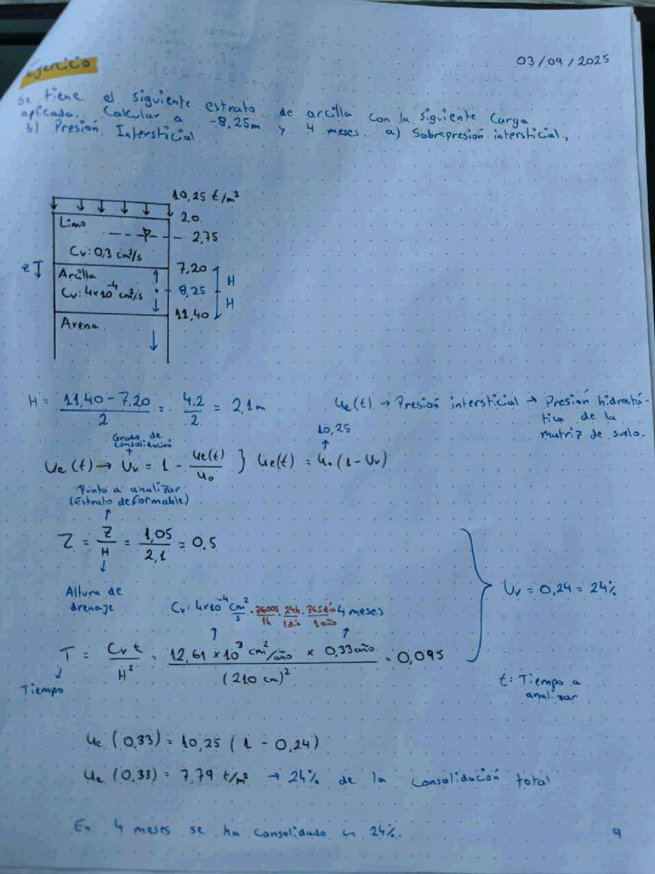 Ejercicio
03/09/2025
se tiene el siguiente estrato de arcilla con la siguiente carga
aplicada. Calcular a -8,25m y 4 meses. a) Sobrepresión intersticial,
b) Presión Intersticial
10,25 t/m²
Limo
2,0
2,75
Cv: 0,3 cm²/s
Arcilla
7,20
H
Cv: 4x10⁻⁴ cm²/s
8,25
H
11,40
Arena
H = (11,40 - 7,20)/2 = 4.2/2 = 2,1m
Ue(t) → Presión intersticial → Presión hidrostá-
tica de la
matriz de suelo.
Grado de
consolidación
10,25
Ue(t) → Uv = 1 - Ue(t)/u₀ } Ue(t) = u₀ (1 - Uv)
Punto a analizar
(Estrato deformable)
Z = Z/H = 1,05/2,1 = 0,5
Altura de
drenaje
Cv: 4x10⁻⁴ cm²/s · 3600s/1h · 24h/1día · 365día/1año
4 meses
Uv = 0,24 = 24%
T = Cv t/H² = (12,61 x 10³ cm²/año x 0,33año)/(210 cm)² = 0,095
Tiempo
t: Tiempo a
analizar
Ue (0,33) = 10,25 (1 - 0,24)
Ue (0,33) = 7,79 t/m² → 24% de la consolidación total
En 4 meses se ha consolidado un 24%.